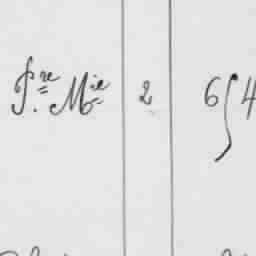 Pre Mie 2 6 ∫ 4